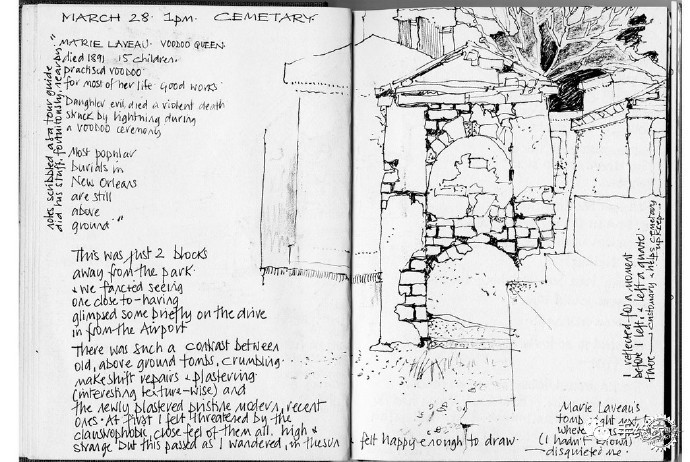 MARCH 28. 1pm. CEMETARY.
MARIE LAVEAU. VOODOO QUEEN.
died 1891 15 children.
practised VOODOO
for most of her life. Good works.
Daughter evil, died a violent death
struck by lightning during
a VOODOO ceremony
Most popular
burials in
New Orleans
are still
above
ground."
notes scribbled as a tour guide
did his stuff, fortuitously, nearby "
This was just 2 blocks
away from the park.
& we fancied seeing
one close to - having
glimpsed some briefly on the drive
in from the Airport
There was such a contrast between
old, above ground tombs, crumbling.
makeshift repairs & plastering
(interesting texture-wise) and
the newly plastered pristine modern, recent
ones. At first I felt threatened by the
claustrophobic, close feel of them all. high &
strange but this passed as I wandered, in the sun & felt happy enough to draw.
I reflected for a moment
before I left, & left a quarter
there → customary & helps cemetary
upkeep.
Marie Laveau's
tomb right next to
where I was
(I hadn't known)
disquieted me.